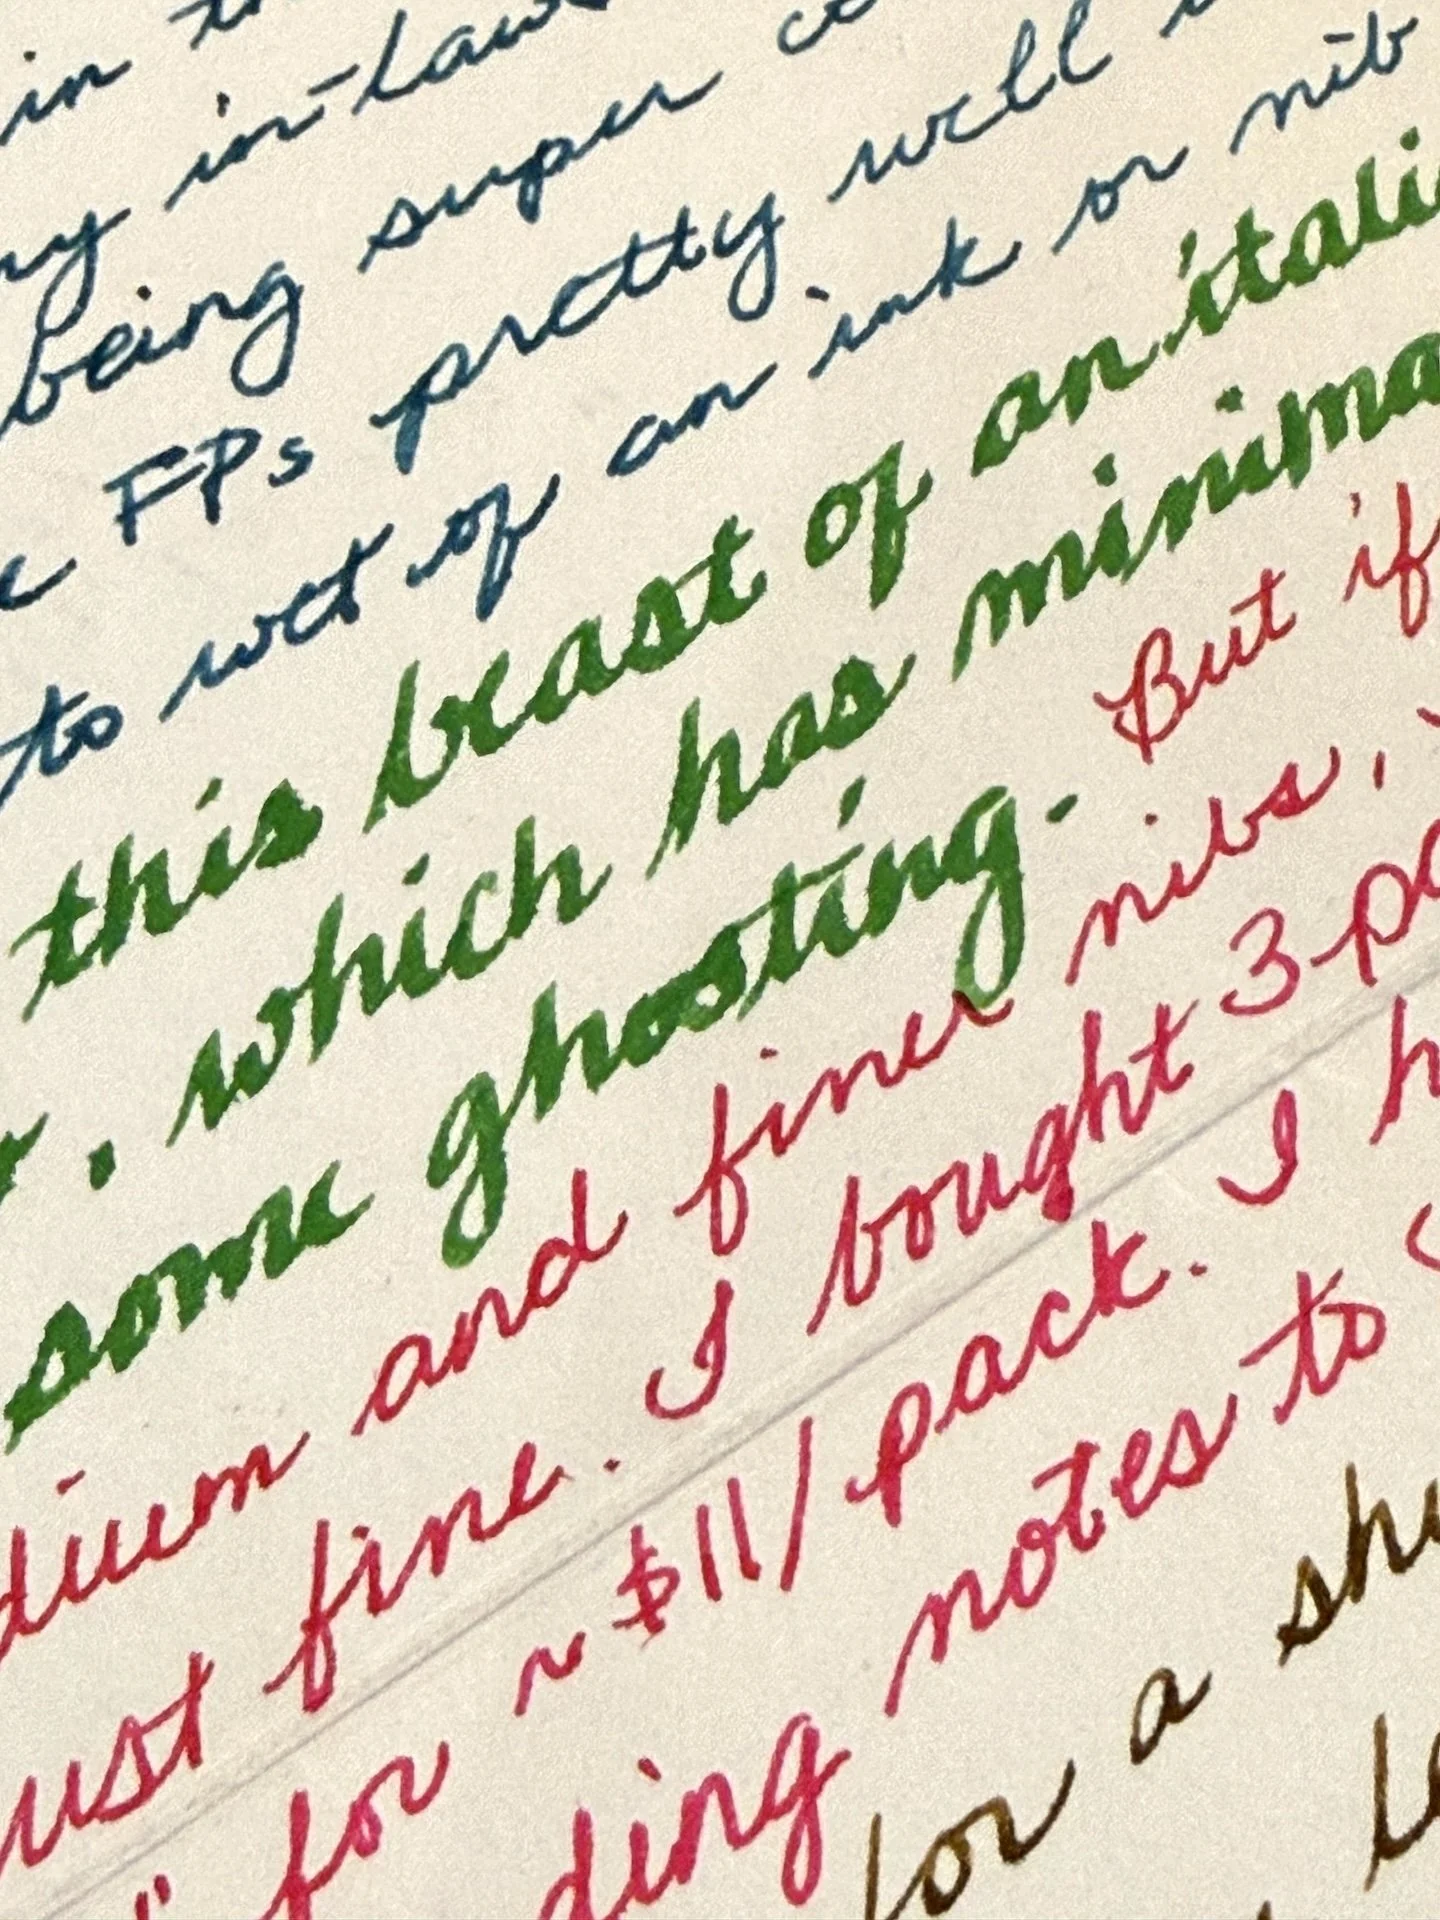 in
my in-laws
being super
FPs pretty well
to wet of an ink or nib
this beast of an itali
. which has minima
some ghosting. But if
dium and finer nibs,
ust fine. I bought 3-pa
" for ~$11/pack. I h
ding notes to
for a sh